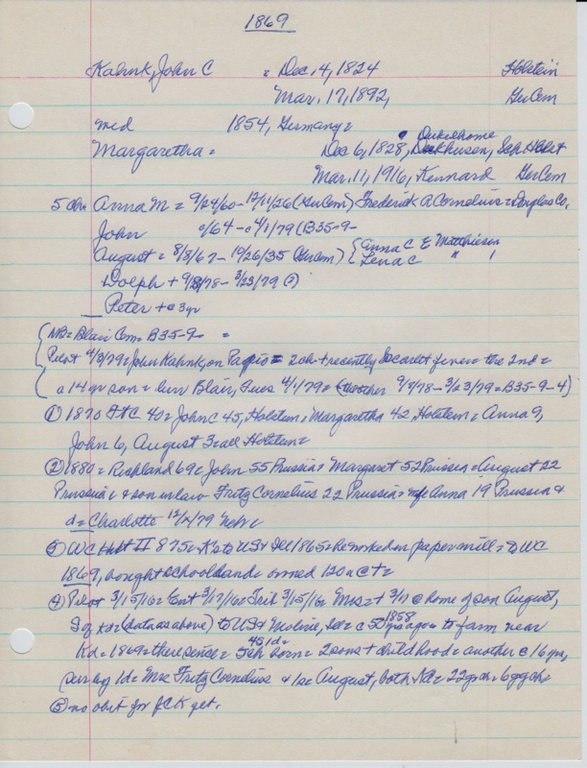 1869
Kahnk, John C = Dec. 4, 1824 Holstein
Mar. 17, 1892, GerCem
md 1854, Germany =
Margaretha = Dec 6, 1828, Holst
Mar. 11, 1916, Kennard GerCem
5 ch = Anna M = 9/24/60 - 12/11/26 (GerCem) Frederick A Cornelius = Douglas Co.
John c/64 - c 4/1/79 (B35-9-
August = 8/8/67 - 10/26/35 (GerCem) { Anna C & Matthiesen
Lena C " "
Dolph + 9/8/78 - 3/23/79
Peter + c 3 yr
NB = Blair Cem = B35-9- =
Pilot 4/8/79 = John Kahnk, on Papio = 2 ch + recently scarlet fever = the 2nd =
a 14 yr son = bur Blair, Tues 4/1/79 = (another 9/8/78 - 3/23/79 = B35-9-4)
① 1870 = John C 45, Holstein, Margaretha 42 Holstein = Anna 9,
John 6, August 3 = all Holstein =
② 1880 = Richland 69 = John 55 Prussia = Margaret 52 Prussia = August 22
Prussia = & son in law Fritz Cornelius 22 Prussia = wf Anna 19 Prussia &
d = Charlotte 12/79 Neb =
③ WC Hist II 875 = to US & Ill 1865 = he worked in paper mill = to WC
1869, bought school land = owned 120 a
④ Pilot 3/15/16 = Ent 3/17/16 = Trib 3/15/16 Mrs = + 3/11 @ home of son August,
(data as above) to USA Moline, Ill = c 50 yrs ago 1858 to farm near
Kd = 1869 = there since = 5 ch born = 4s 1d = 2 sons + childhood = another c 16 yrs,
surv by 1d = Mrs Fritz Cornelius & 1s = August, both Kd = 22 gr ch = 6 ggch =
⑤ no obit for JCK yet.